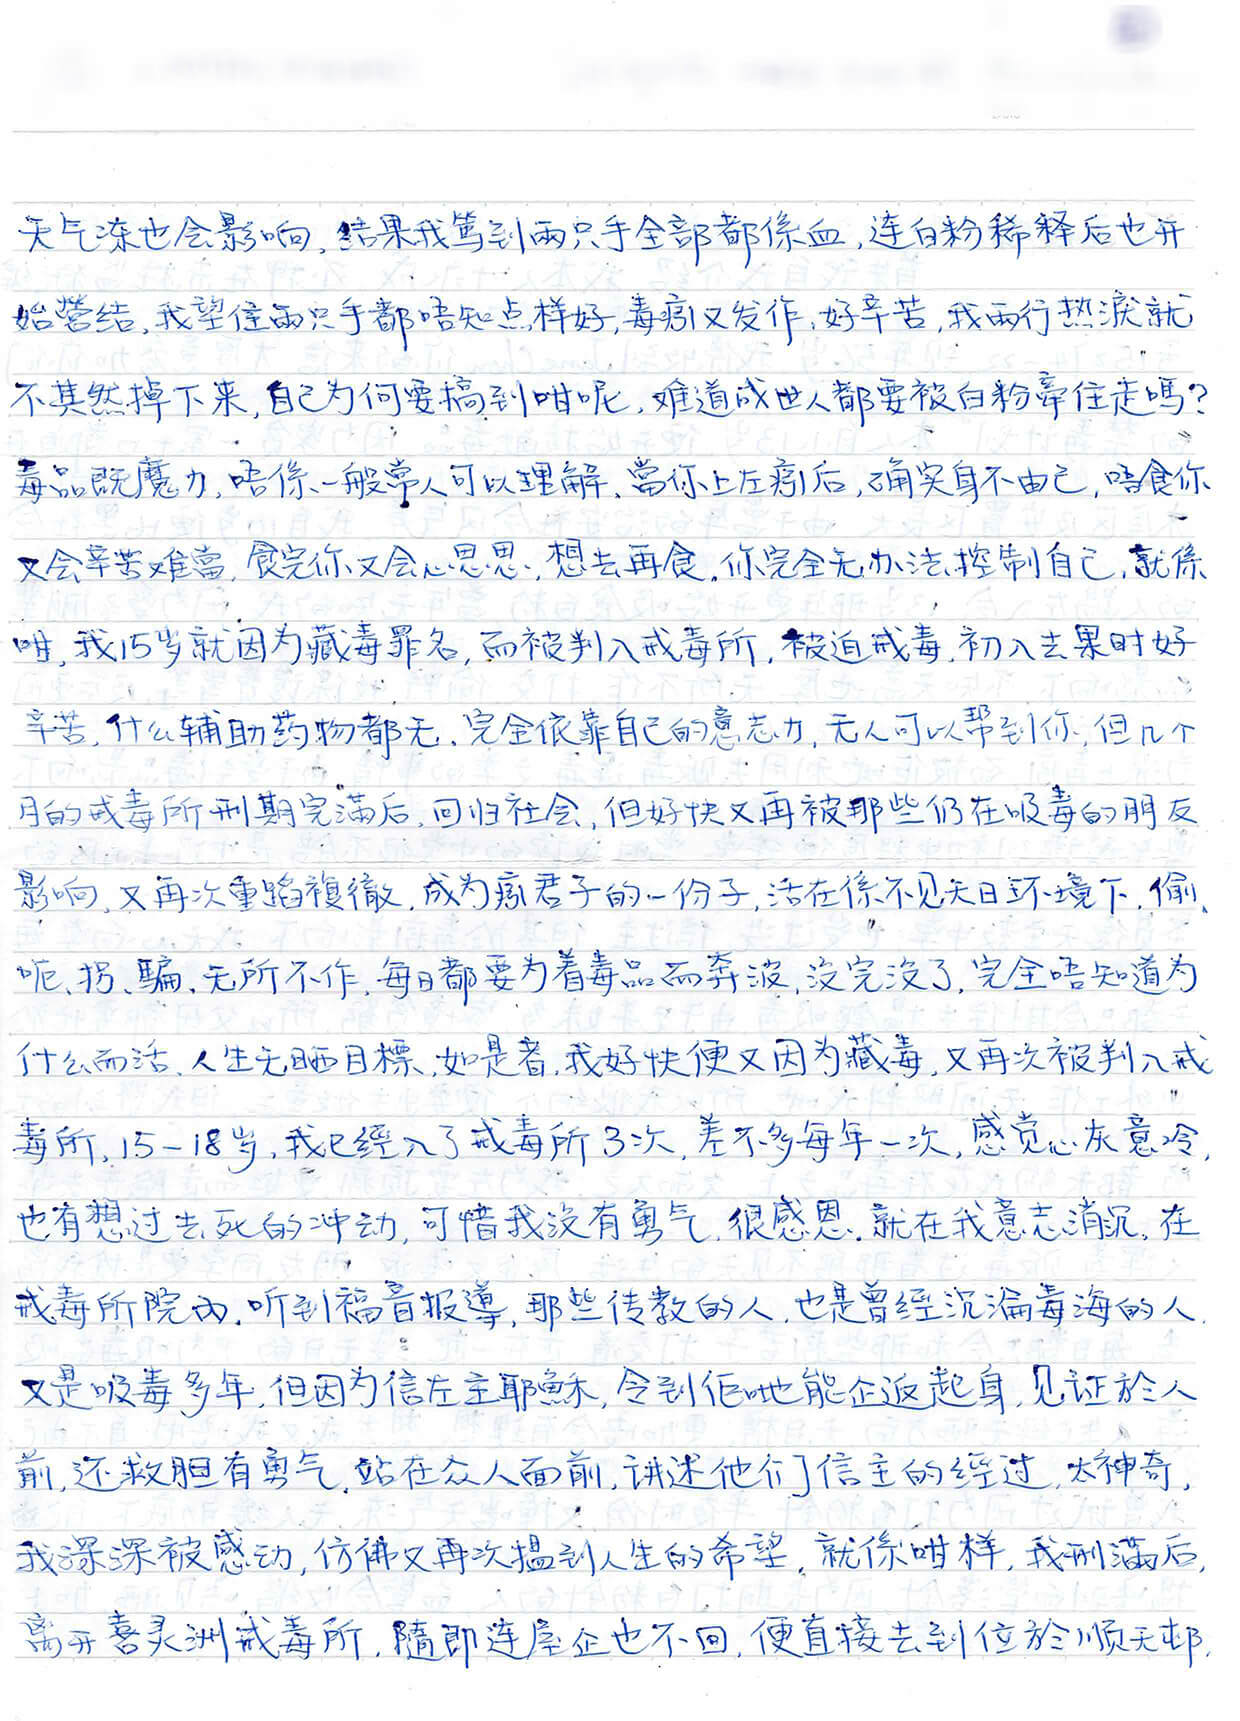 天气冻也会影响，结果我篤到兩只手全部都係血，连白粉稀释后也开
始营结，我望住兩只手都唔知点样好，毒瘾又发作，好辛苦，我兩行热淚就
不其然掉下来，自己为何要搞到咁呢，难道成世人都要被白粉牵住走嗎？
毒品既魔力，唔係一般常人可以理解，當你上左瘾后，确实身不由己，唔食你
又会辛苦难當，食完你又会心思思，想去再食，你完全无办法控制自己，就係
咁，我15岁就因为藏毒罪名，而被判入戒毒所，被迫戒毒，初入去果时好
辛苦，什么辅助药物都无，完全依靠自己的意志力，无人可以帮到你，但几个
月的戒毒所刑期完滿后，回归社会，但好快又再被那些仍在吸毒的朋友
影响，又再次重蹈複徹，成为瘾君子的一份子，活在係不见天日环境下，偷、
呃、拐、騙，无所不作，每日都要为着毒品而奔波，没完没了，完全唔知道为
什么而活，人生无晒目標，如是者，我好快便又因为藏毒，又再次被判入戒
毒所，15－18岁，我已經入了戒毒所3次，差不多每年一次，感觉心灰意冷，
也有想过去死的冲动，可惜我没有勇气，很感恩，就在我意志消沉，在
戒毒所院內，听到福音报導，那些传教的人，也是曾經沉淪毒海的人，
又是吸毒多年，但因为信左主耶穌，令到佢哋能企返起身，见证於人
前，还救胆有勇气，站在众人面前，讲述他们信主的經过，太神奇，
我深深被感动，仿佛又再次揾到人生的希望，就係咁样，我刑滿后，
离开喜灵洲戒毒所，隨即连屋企也不回，便直接去到位於順天邨，